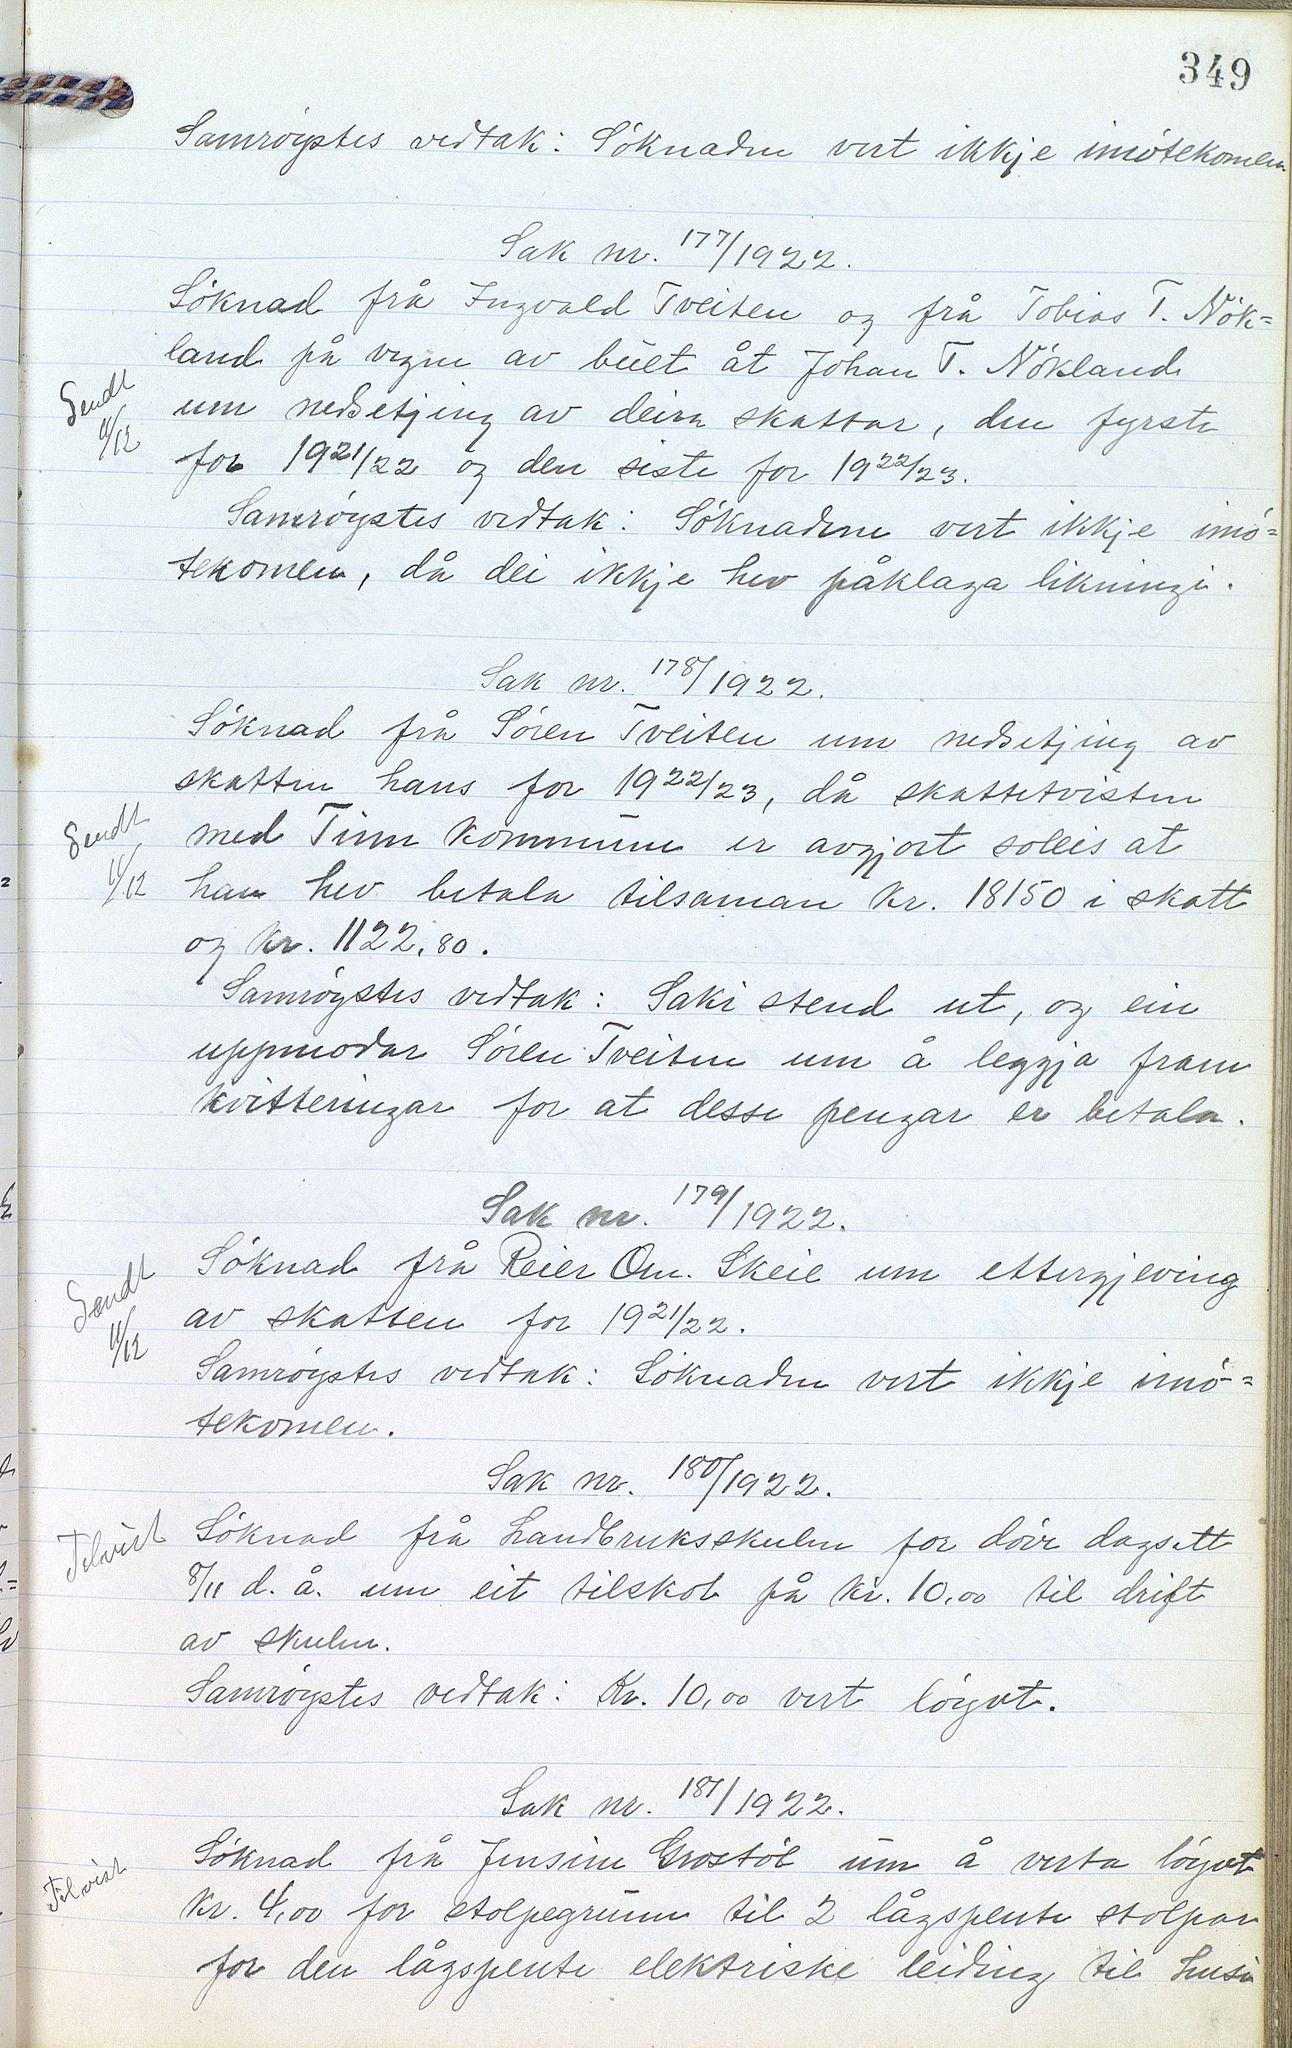 349
Samrøystes vedtak: Söknaden vert ikkje imötekomen.
Sak nr. 177/1922.
Söknad frå Ingvald Tveiten og frå Tobias T. Nök=
land på vegne av büet åt Johan T. Nökland
um nedsetjing av deira skattar, den fyrste
for 1921/22 og den siste for 1922/23.
Sendt
11/12
Samröystes vedtak: Söknadene vert ikkje imö=
tekomen, då dei ikkje hev påklaga likningi.
Sak nr. 178/1922.
Söknad frå Sören Tveiten um nedsetjing av
skatten hans for 1922/23, då skattetvisten
med Tinn kommune er avgjort soleis at
han hev betala tilsaman kr. 18150 i skatt
og kr. 1122,80.
Sendt
11/12
Samröystes vedtak: Saki stend ut, og ein
uppmodar Sören Tveiten um å leggja fram
kvitteringar for at desse pengar er betala.
Sak nr. 179/1922.
Söknad frå Reier Om. Skeie um ettergjeving
av skatten for 1921/22.
Sendt
11/12
Samröystes vedtak: Söknaden vert ikkje imö=
tekomen.
Sak nr. 180/1922.
Söknad frå Landbruksskulen for döve dagsett
8/11 d. å. um eit tilskot på kr. 10,00 til drift
av skulen.
Tilvist
Samröystes vedtak: Kr. 10,00 vert löyvt.
Sak nr. 181/1922.
Söknad frå Jensine Grostöl um å verta löyvt
kr. 4,00 for stolpegrunn til 2 lågspente stolpar
for den lågspente elektriske leiding til husi
Tilvist